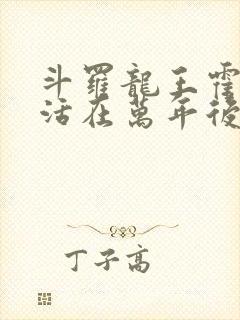 斗羅龍王霍
活在萬年後
丁子高